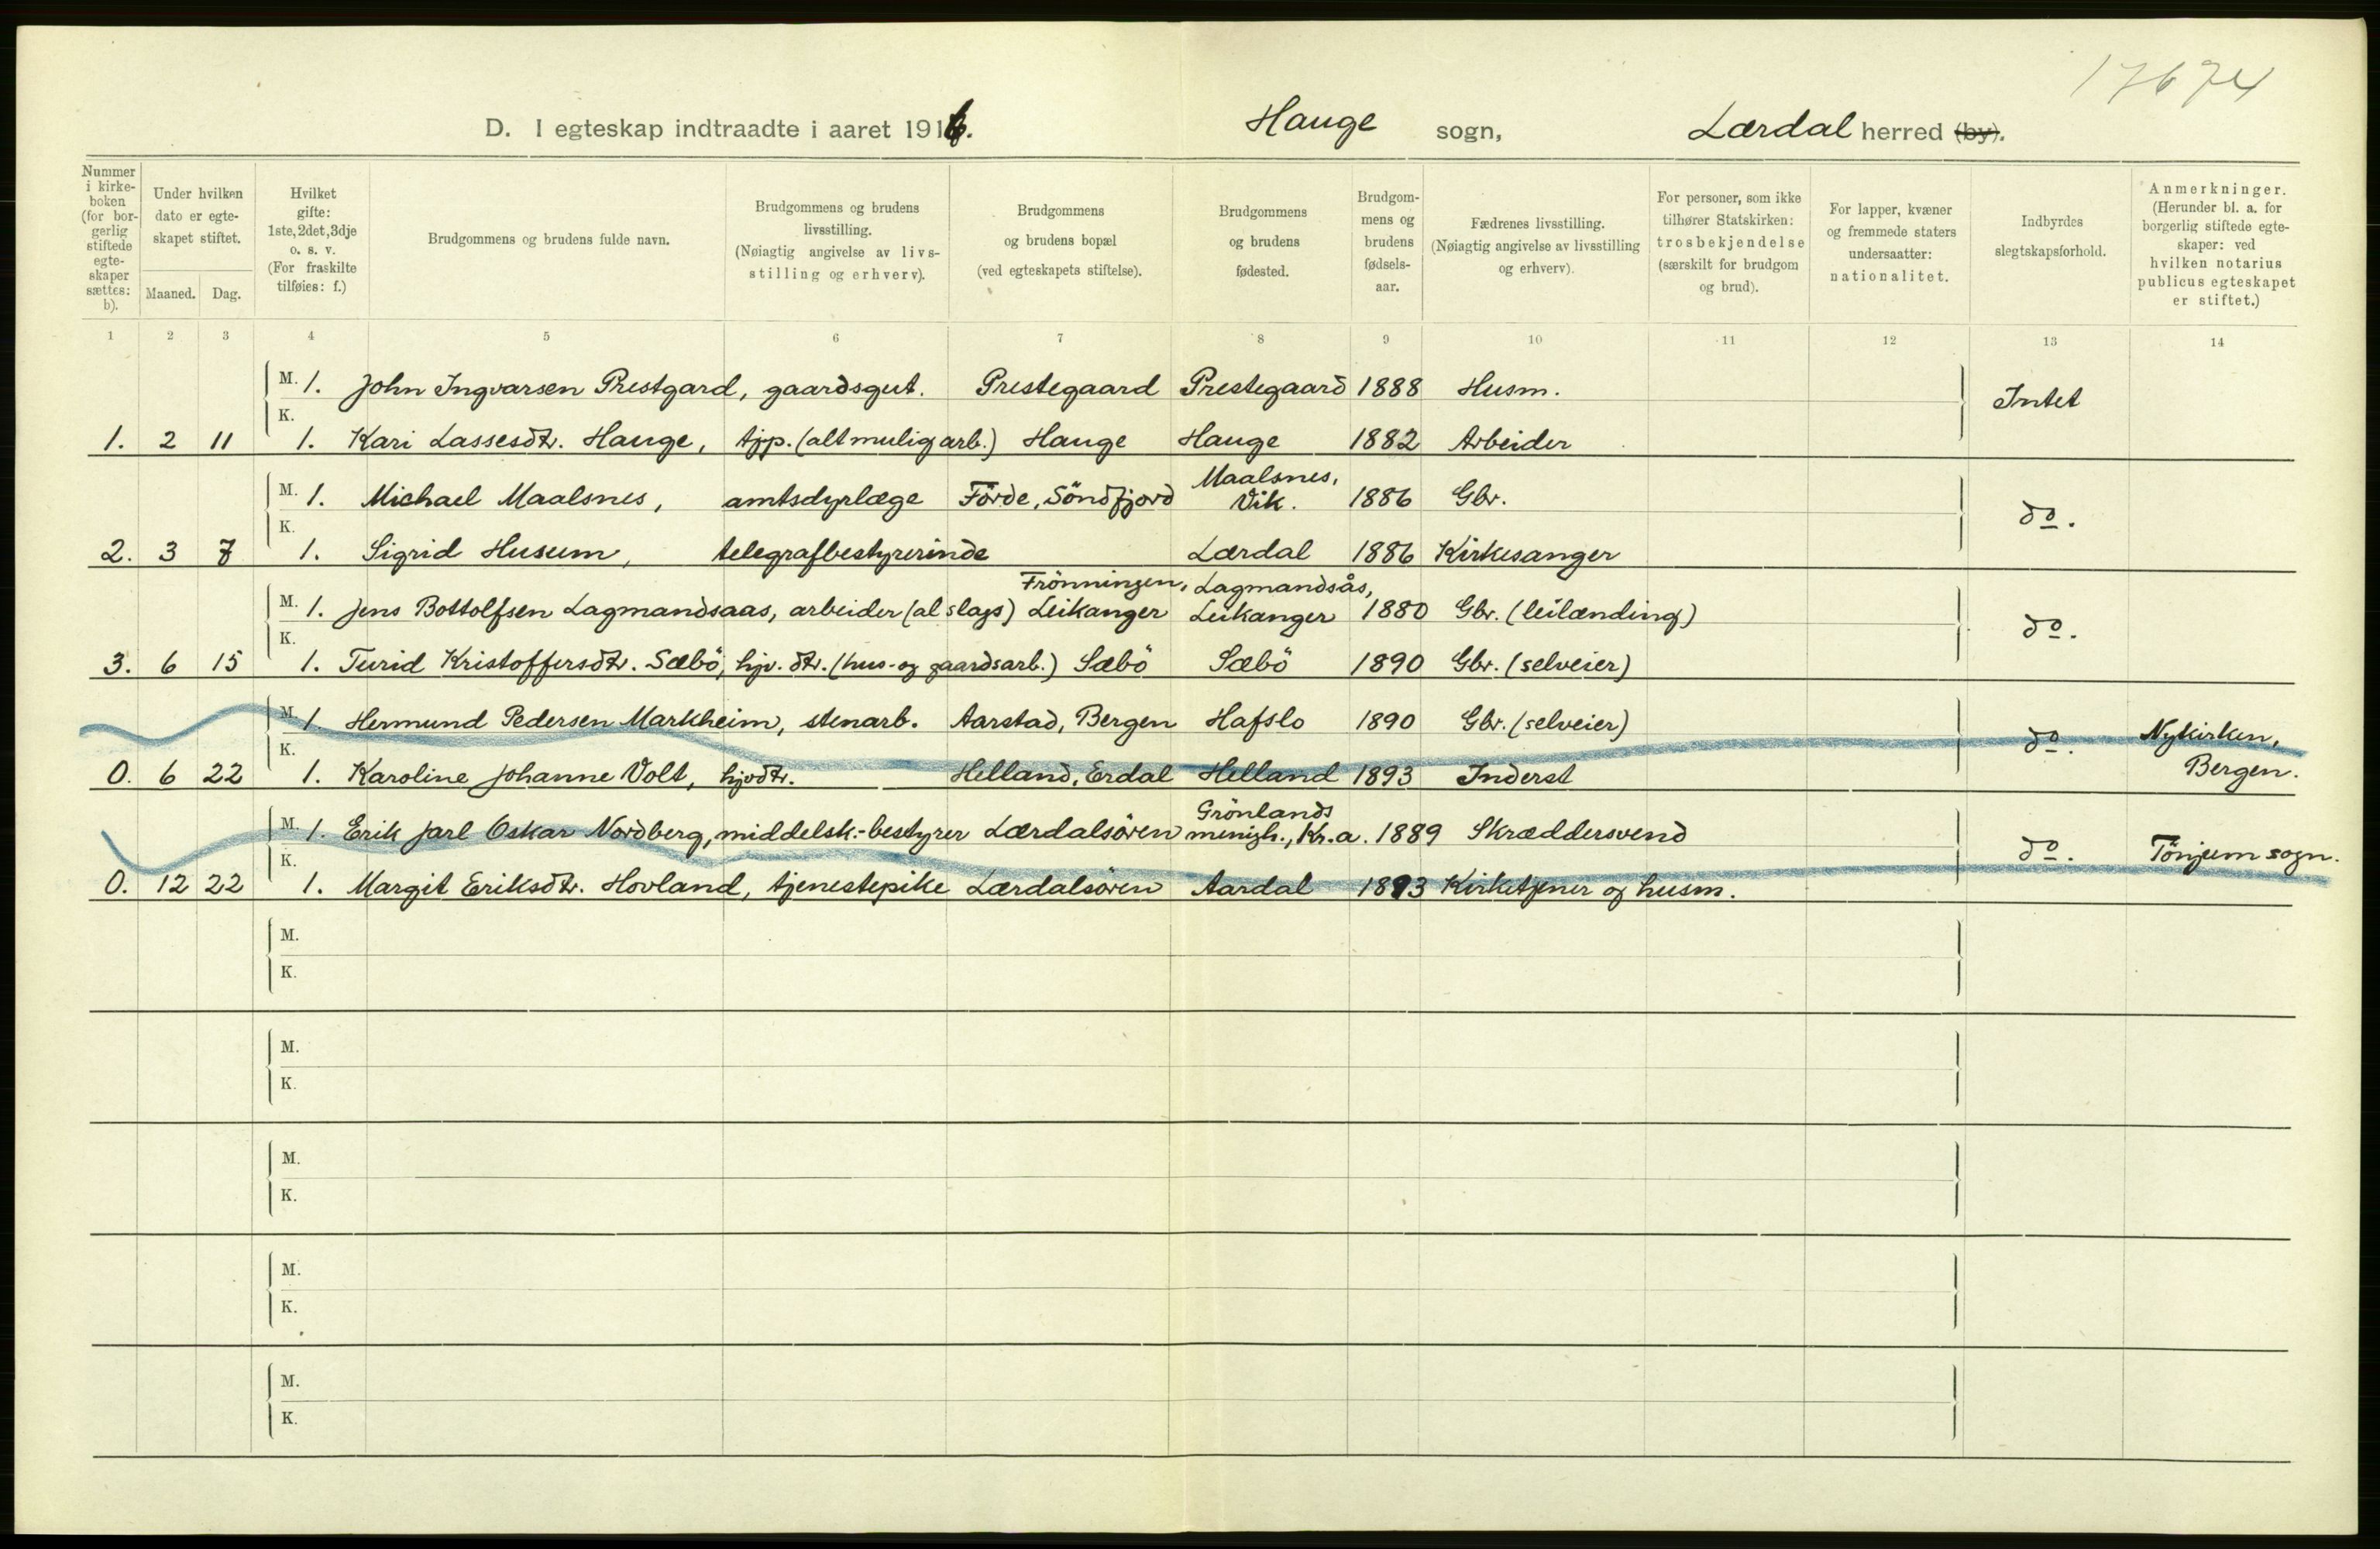 17674
D. I egteskap indtraadte i aaret 1916. Hauge sogn, Lærdal herred (by).
Nummer i kirke-boken (for bor-gerlig stiftede egte-skaper sættes: b).
Under hvilken dato er egte-skapet stiftet.
Maaned. Dag.
Hvilket gifte: 1ste, 2det, 3dje o. s. v. (For fraskilte tilføies: f.)
Brudgommens og brudens fulde navn.
Brudgommens og brudens livsstilling. (Nøiagtig angivelse av livs-stilling og erhverv).
Brudgommens og brudens bopæl (ved egteskapets stiftelse).
Brudgommens og brudens fødested.
Brudgom-mens og brudens fødsels-aar.
Fædrenes livsstilling. (Nøiagtig angivelse av livsstilling og erhverv).
For personer, som ikke tilhører Statskirken: trosbekjendelse (særskilt for brudgom og brud).
For lapper, kvæner og fremmede staters undersaatter: nationalitet.
Indbyrdes slegtskapsforhold.
Anmerkninger. (Herunder bl. a. for borgerlig stiftede egte-skaper: ved hvilken notarius publicus egteskapet er stiftet.)
1 2 3 4 5 6 7 8 9 10 11 12 13 14
M. 1. John Ingvarsen Prestgard, gaardsgut. Prestegaard Prestegaard 1888 Husm. Intet
1. 2 11 K. 1. Kari Lassesdtr. Hauge, tjp. (altmulig arb.) Hauge Hauge 1882 Arbeider
M. 1. Michael Maalsnes, amtsdyrlæge Förde, Söndfjord Maalsnes, Vik. 1886 Gbr. do.
2. 3 7 K. 1. Sigrid Husum, telegrafbestyrerinde Lærdal 1886 Kirkesanger
M. 1. Jens Bottolfsen Lagmandsaas, arbeider (al slags) Frönningen, Leikanger Lagmandsås, Leikanger 1880 Gbr. (leilænding) do.
3. 6 15 K. 1. Turid Kristoffersdtr. Sæbö, hjv. dtr. (hus- og gaardsarb.) Sæbö Sæbö 1890 Gbr. (selveier)
M. 1. Hermund Pedersen Markheim, stenarb. Aarstad, Bergen Hafslo 1890 Gbr. (selveier) do. Nykirken,
0. 6 22 K. 1. Karoline Johanne Volt, hjvdtr. Helland, Erdal Helland 1893 Inderst Bergen.
M. 1. Erik Jarl Oskar Nordberg, middelsk.-bestyrer Lærdalsören Grönlands menigh., Kr.a. 1889 Skræddersvend do. Tönjum sogn.
0. 12 22 K. 1. Margit Eriksdtr. Hovland, tjenestepike Lærdalsören Aardal 1893 Kirketjener og husm.
M.
K.
M.
K.
M.
K.
M.
K.
M.
K.